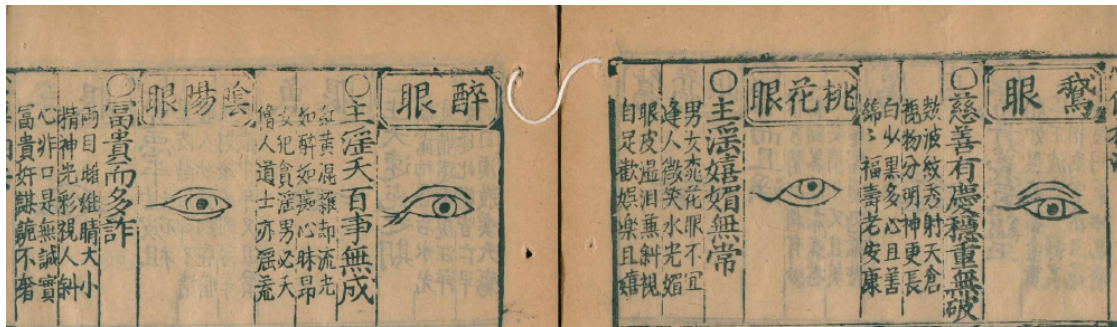 鵞眼
○慈善有應穩重無破
數波紋秀射天倉
視物分明神更長
白少黑多心且善
綿〻福壽老安康
桃花眼
○主淫嬉媚無常
男女桃花眼不宜
逢人微笑水光媚
眼皮濕泪兼斜視
自足歡娯樂且嬉
醉眼
○主淫夭百事無成
紅黄混雜却流光
如醉如癡心昧昂
女犯貪淫男必夭
僧人道士亦淫荒
陰陽眼
○冨貴而多詐
兩目雌雄睛大小
精神光彩視人斜
心非口是無誠實
冨貴奸謀詭不奢